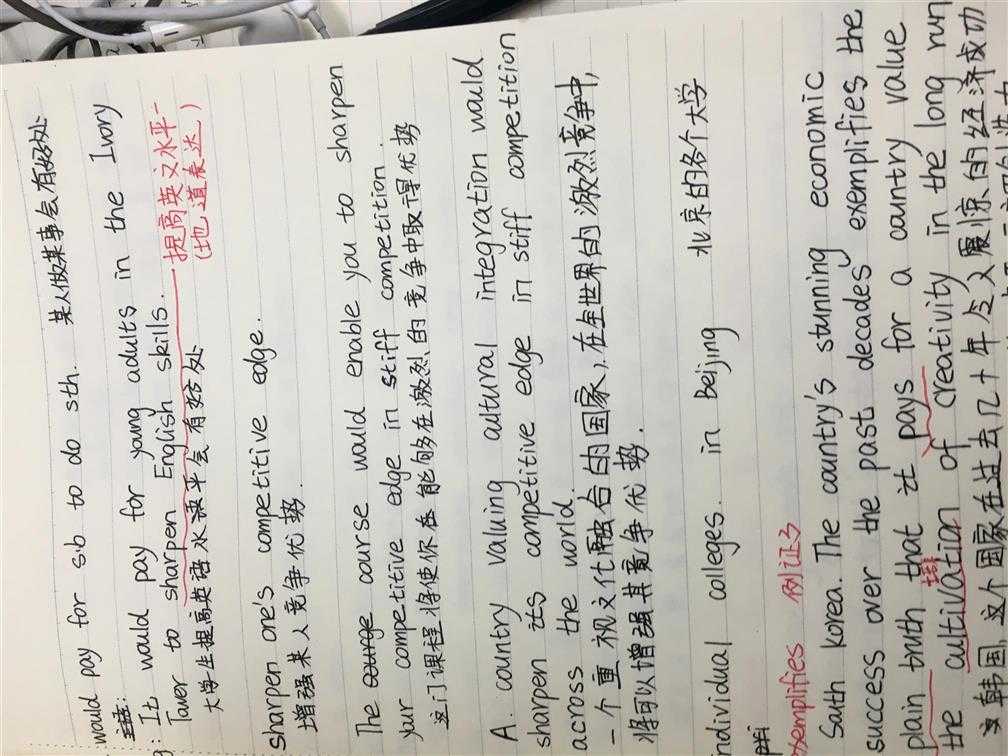 would pay for sb to do sth. 某人做某事会有好处
: It would pay for young adults in the Ivory
Tower to sharpen English skills. 提高英文水平
(地道表达)
大学生提高英语水平会有好处
sharpen one's competitive edge.
增强某人竞争优势.
The course would enable you to sharpen
your competitive edge in stiff competition.
这门课程将使你能够在激烈的竞争中取得优势
A country valuing cultural integration would
sharpen its competitive edge in stiff competition
across the world.
一个重视文化融合的国家,在全世界的激烈竞争中,
将可以增强其竞争优势.
ndividual colleges. in Beijing 北京的各个大学
exemplifies 例证了
South Korea. The country's stunning economic
success over the past decades exemplifies the
plain truth that it pays for a country value
the cultivation of creativity in the long run
韩国 这个国家在过去几十年令人震惊的经济成功